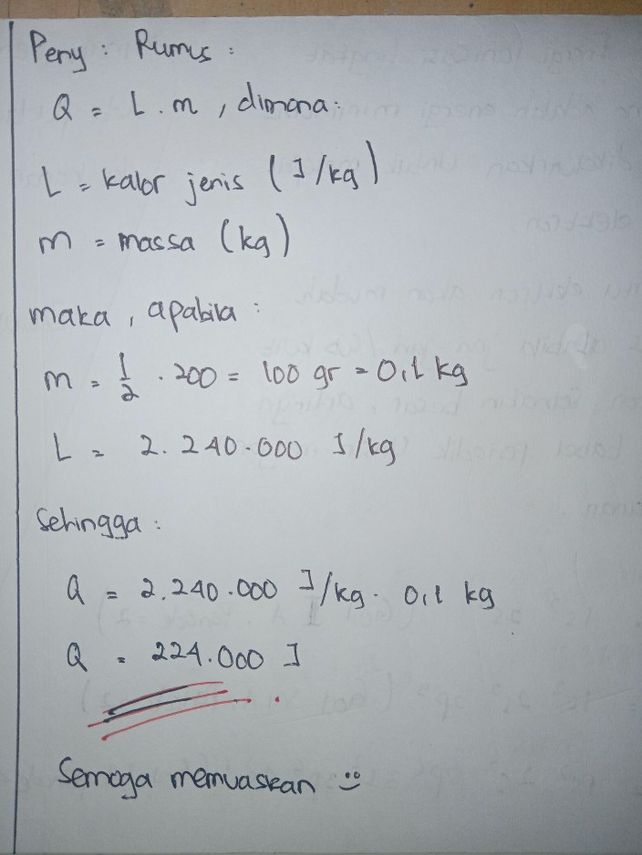 Peny : Rumus :
Q = L . m , dimana :
L = kalor jenis (J/kg)
m = massa (kg)
maka , apabila :
m = 1/2 . 200 = 100 gr = 0,1 kg
L = 2.240.000 J/kg
Sehingga :
Q = 2.240.000 J/kg . 0,1 kg
Q = 224.000 J
Semoga memuaskan :)